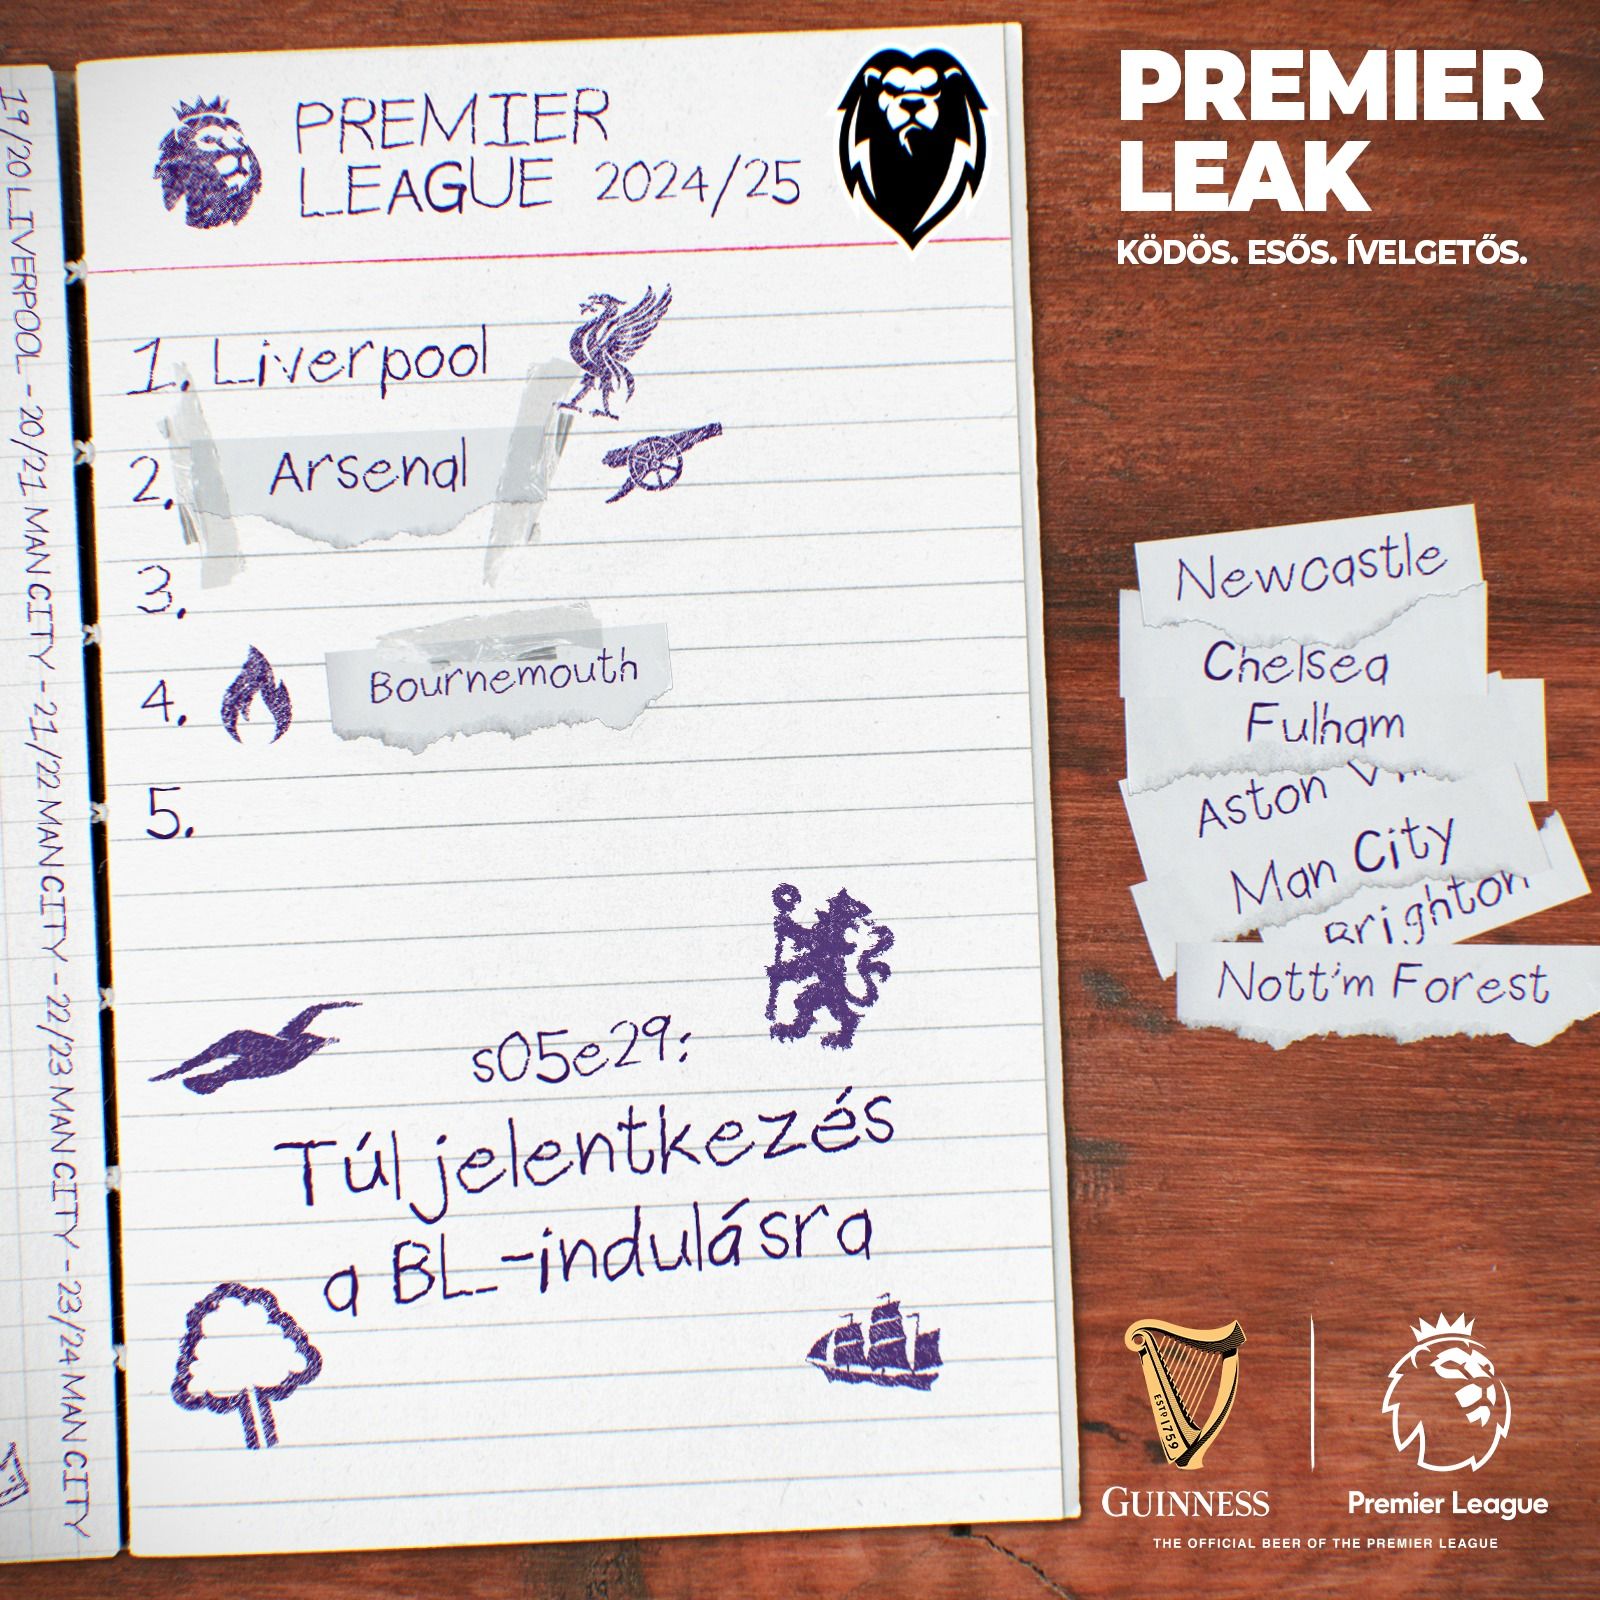 19/20 LIVERPOOL - 20/21 MAN CITY - 21/22 MAN CITY - 22/23 MAN CITY - 23/24 MAN CITY
PREMIER
LEAGUE 2024/25
1. Liverpool
2. Arsenal
3.
4. Bournemouth
5.
s05e29:
Túljelentkezés
a BL-indulásra
PREMIER
LEAK
KÖDÖS. ESŐS. ÍVELGETŐS.
Newcastle
Chelsea
Fulham
Aston
Man City
Brighton
Nott'm Forest
ESTD 1759
GUINNESS
Premier League
THE OFFICIAL BEER OF THE PREMIER LEAGUE